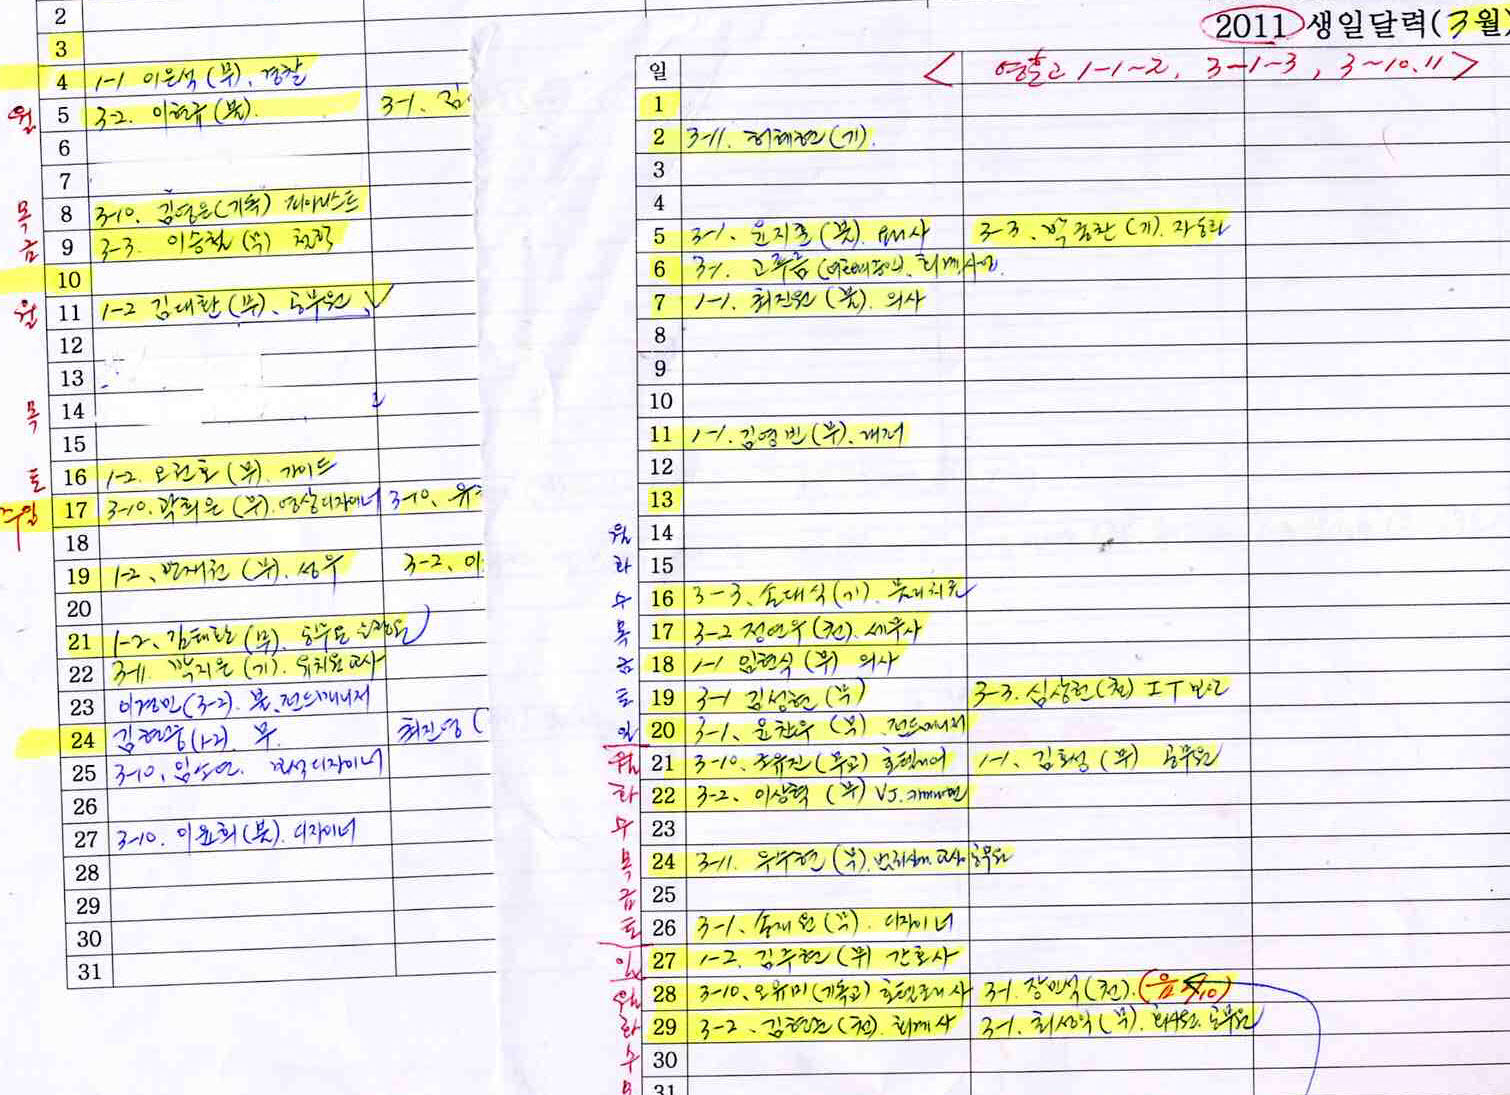 2
3
4 1-1 이은석 (무). 경찰
월 5 3-2. 이현규 (불). 3-1. 김
6
7
목 8 3-10. 김영은 (기독) 피아니스트
금 9 3-3. 이승철 (무)
10
월 11 1-2 김대환 (무). 공무원
12
13
목 14
15
토 16 1-2. 오진호 (무). 가이드
주일 17 3-10. 곽희은 (무). 영상디자이너 3-10.
18
19 1-2. 민재원 (무). 성우 3-2. 이
20
21 1-2. 김태환 (무). 공무원
22 3-11. 박지은 (기). 유치원교사
23 이경민 (3-2). 불. 펀드매니저
24 김현중 (1-2). 무. 최진영 (
25 3-10. 임성연. 디자이너
26
27 3-10. 이윤희 (불). 디자이너
28
29
30
31
2011 생일달력(3월)
일 < 영훈고 1-1~2, 3~1-3, 3~10.11 >
1
2 3-11. 허혜현 (기).
3
4
5 3-1. 윤지훈 (불). 3-3. 박종찬 (기).
6 3-1. 고푸름
7 1-1. 최진원 (불). 의사
8
9
10
11 1-1. 김영빈 (무).
12
13
월 14
화 15
수 16 3-3. 손대식 (기). 물리치료
목 17 3-2 정연우 (천). 세무사
금 18 1-1 임현식 (무) 의사
토 19 3-1 김성현 (무) 3-3. 심상현 (천) IT
일 20 3-1. 윤찬우 (무). 펀드매니저
월 21 3-10. 조유진 (무교) 호텔리어 1-1. 김효성 (무) 공무원
화 22 3-2. 이상혁 (무) VJ. 카메라맨
수 23
목 24 3-11. 우수현 (무).
금 25
토 26 3-1. 송재원 (무). 디자이너
일 27 1-2. 김주현 (무) 간호사
월 28 3-10. 오유미 (기독교) 호텔조리사 3-1. 장민석 (천).
화 29 3-2. 김현준 (천). 회계사 3-1. 최성익 (무). 회사원. 공무원
수 30
목 31